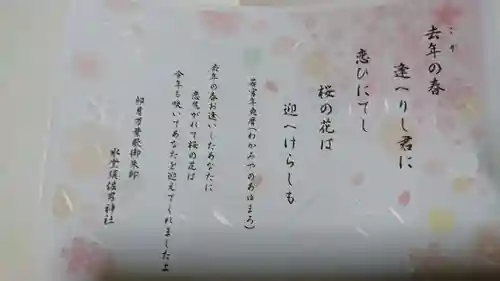 こぞ
去年の春
逢へりし君に
恋ひにてし
桜の花は
迎へけらしも
若宮年魚麿(わかみやのあゆまろ)
去年の春お逢いしたあなたに
恋焦がれて桜の花は
今年も咲いてあなたを迎えてくれましたよ
卯月万葉歌御朱印
氷室須佐男神社